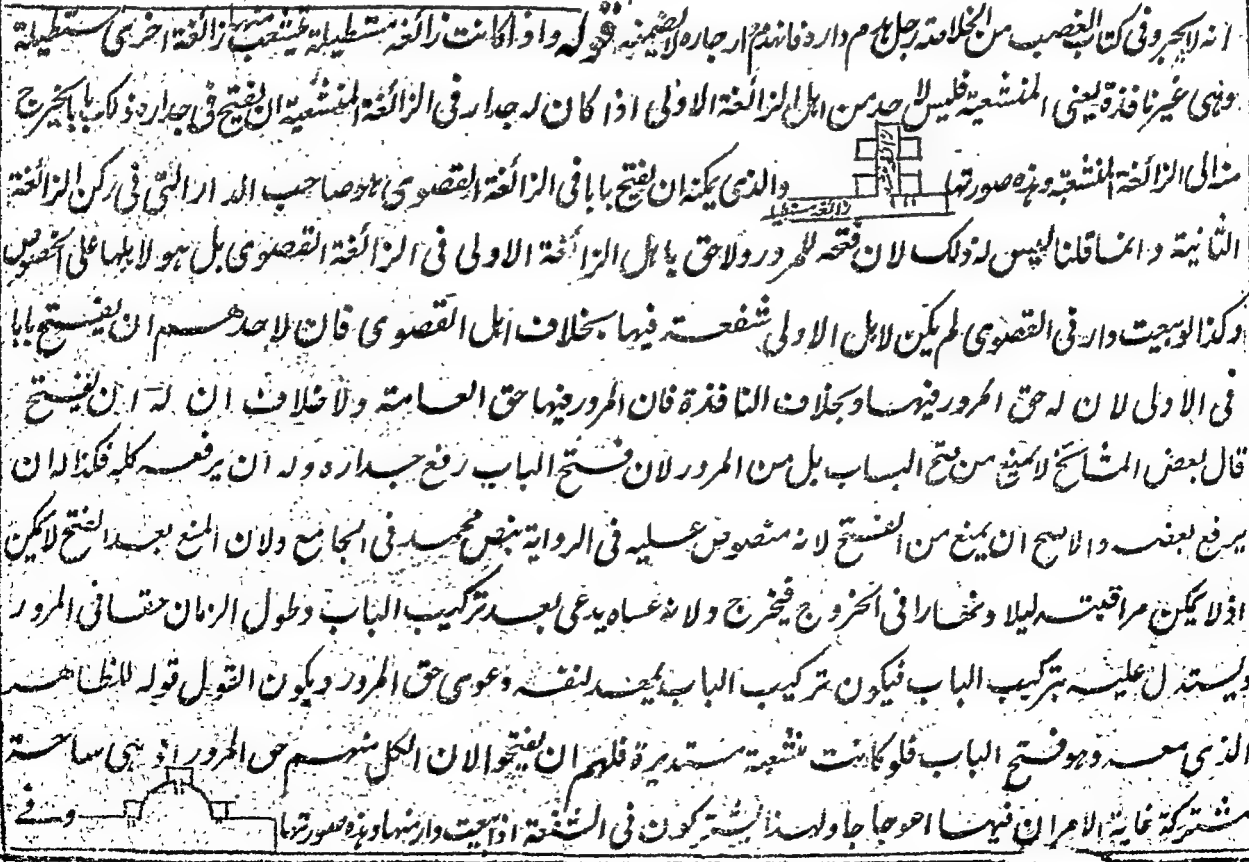 انه لا يجبر وفى كتاب الغصب من الخلاصة رجل هدم داره فانهدم دار جاره لا يضمنه قوله واذا كانت زائغة مستطيلة تنشعب منها زائغة اخرى مستطيلة
وهى غير نافذة يعنى المنشعبة فليس لاحد من اهل الزائغة الاولى اذا كان له جدار فى الزائغة المنشعبة ان يفتح فى جداره ذلك بابا يخرج
منه الى الزائغة المنشعبة وهذه صورتها زائغة مستطيلة والذى يمكنه ان يفتح بابا فى الزائغة القصوى هو صاحب الدار التى فى ركن الزائغة
الثانية وانما قلنا ليس له ذلك لان فتحه للمرور ولا حق لاهل الزائغة الاولى فى الزائغة القصوى بل هو لاهلها على الخصوص
وكذا لو بيعت دار فى القصوى لم يكن لاهل الاولى شفعة فيها بخلاف اهل القصوى فان لاحدهم ان يفتح بابا
فى الاولى لان له حق المرور فيها وبخلاف النافذة فان المرور فيها حق العامة ولا خلاف ان له ان يفتح
قال بعض المشائخ لا يمنع من فتح الباب بل من المرور لان فتح الباب رفع جداره وله ان يرفعه كله فكذا له ان
يرفع بعضه والاصح ان يمنع من الفتح لانه منصوص عليه فى الرواية بنص محمد فى الجامع ولان المنع بعد الفتح لا يمكن
اذ لا يمكن مراقبته ليلا ونهارا فى الخروج فيخرج ولانه عساه يدعى بعد تركيب الباب وطول الزمان حقا فى المرور
ويستدل عليه بتركيب الباب فيكون تركيب الباب يمهد لنفسه دعوى حق المرور ويكون القول قوله للظاهر
الذى معه وهو فتح الباب فلو كانت المنشعبة مستديرة فلهم ان يفتحوا لان لكل منهم حق المرور اذ هى ساحة
مشتركة غاية الامر ان فيها اعوجاجا ولهذا يشتركون فى الشفعة اذا بيعت دار منها وهذه صورتها وفى